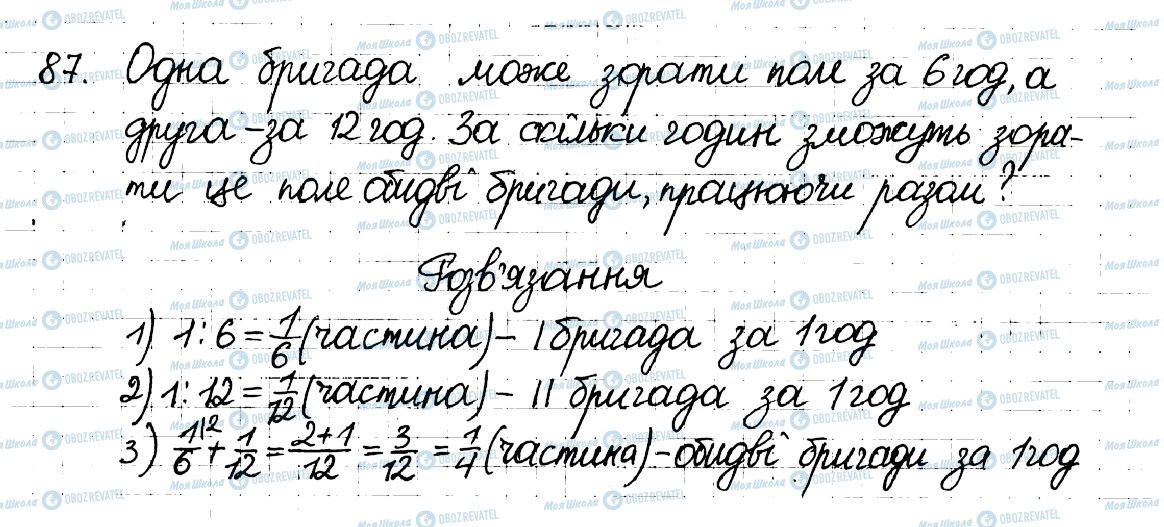 87. Одна бригада може зорати поле за 6 год, а
друга – за 12 год. За скільки годин зможуть зора-
ти це поле обидві бригади, працюючи разом?
Розв'язання
1) 1 : 6 = 1/6 (частина) – I бригада за 1 год
2) 1 : 12 = 1/12 (частина) – II бригада за 1 год
3) 1|2/6 + 1/12 = 2+1/12 = 3/12 = 1/4 (частина) – обидві бригади за 1 год